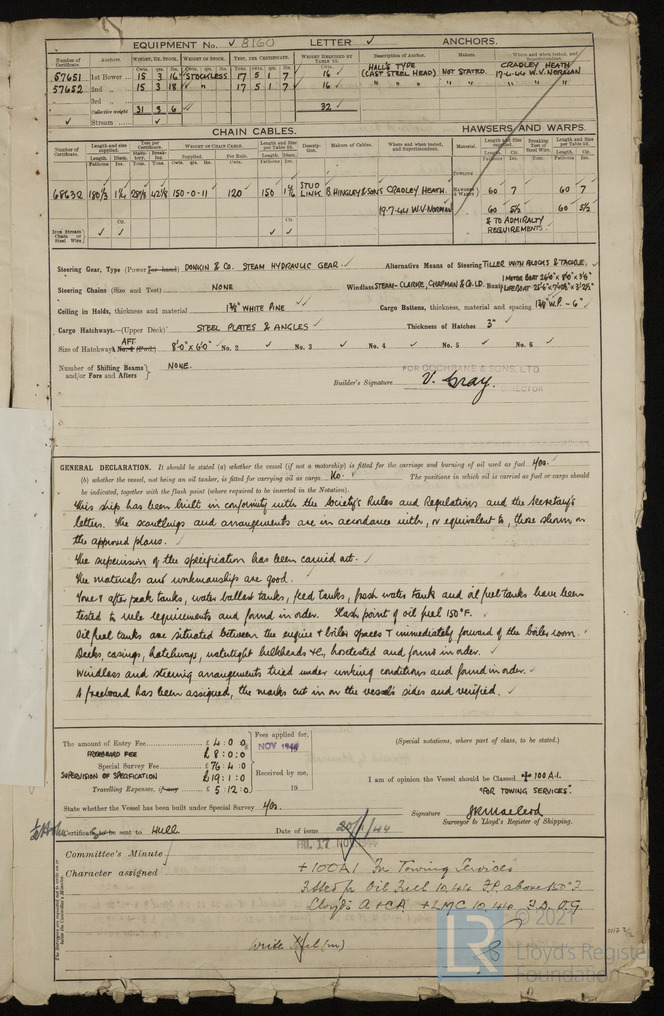 EQUIPMENT No. ✓ 8160 LETTER ✓ ANCHORS.
Number of Certificate. Anchors. WEIGHT, EX. STOCK. WEIGHT OF STOCK. TEST, PER CERTIFICATE. WEIGHT REQUIRED BY TABLE 53. Description of Anchor. Makers. Where and when tested, and Superintendent.
57651 1st Bower 15 3 16 STOCKLESS 17 5 1 7 16 ✓ HALL'S TYPE (CAST STEEL HEAD) NOT STATED. CRADLEY HEATH 17-4-44 W.V. NORMAN
57652 2nd " 15 3 18 ✓ " 17 5 1 7 16 ✓ " " " " " " "
3rd "
Collective weight 31 3 6 32 ✓
✓ Stream ✓
CHAIN CABLES. HAWSERS AND WARPS.
Number of Certificate. Length and size supplied. Test per Certificate. WEIGHT OF CHAIN CABLE. Length and Size per Table 53. Description. Makers of Cables. Where and when tested, and Superintendent. Material. Length and Size supplied. Breaking Test of Steel Wire. Length and Size per Table 53.
68632 180/3 150-0-11 120 150 STUD LINK B. HINGLEY & SONS CRADLEY HEATH. HAWSERS & WARPS 60 7 60 7
19-7-44 W.V. NORMAN 60 5½ 60 5½
Iron Stream Chain or Steel Wire ✓ ✓ ✓ ✓ & TO ADMIRALTY REQUIREMENTS
Steering Gear, Type (Power or hand) DONKIN & Co. STEAM HYDRAULIC GEAR. ✓ Alternative Means of Steering TILLER WITH BLOCKS & TACKLE.
Steering Chains (Size and Test) NONE Windlass STEAM-CLARKE, CHAPMAN & Co. LD. Boats 1 MOTOR BOAT 26'0" x 8'0" x 3'6"
Ceiling in Holds, thickness and material 1¾" WHITE PINE ✓ Cargo Battens, thickness, material and spacing 1¾" W.P. - 6"
Cargo Hatchways.—(Upper Deck) STEEL PLATES & ANGLES ✓ Thickness of Hatches 3" ✓
AFT
Size of Hatchways No. 1 (Fwd.) 8'0" x 6'0" ✓ No. 2 ✓ No. 3 ✓ No. 4 ✓ No. 5 ✓ No. 6 ✓
Number of Shifting Beams and/or Fore and Afters NONE.
FOR COCHRANE & SONS, LTD
Builder's Signature V. Gray. DIRECTOR
GENERAL DECLARATION. It should be stated (a) whether the vessel (if not a motorship) is fitted for the carriage and burning of oil used as fuel Yes. ✓
(b) whether the vessel, not being an oil tanker, is fitted for carrying oil as cargo No. ✓ The positions in which oil is carried as fuel or cargo should
be indicated, together with the flash point (where required to be inserted in the Notation).
This ship has been built in conformity with the Society's Rules and Regulations and the Secretary's
letters. The scantlings and arrangements are in accordance with, or equivalent to, those shown on
the approved plans. ✓
The supervision of the specification has been carried out. ✓
The materials and workmanship are good. ✓
Fore & after peak tanks, water ballast tanks, feed tanks, fresh water tank and oil fuel tanks have been
tested to rule requirements and found in order. Flash point of oil fuel 150°F. ✓
Oil fuel tanks are situated between the engine & boiler spaces & immediately forward of the boiler room. ✓
Decks, casings, hatchways, watertight bulkheads &c, hosetested and found in order. ✓
Windlass and steering arrangements tried under working conditions and found in order. ✓
A freeboard has been assigned, the marks cut in on the vessel's sides and verified. ✓
The amount of Entry Fee £ 4 : 0 : 0 Fees applied for, NOV 1944
FREEBOARD FEE £ 8 : 0 : 0
Special Survey Fee £ 76 : 4 : 0 Received by me,
SUPERVISION OF SPECIFICATION £ 19 : 1 : 0
Travelling Expenses, if any £ 5 : 12 : 0 19
(Special notations, where part of class, to be stated.)
I am of opinion the Vessel should be Classed ✠ 100 A.1.
"FOR TOWING SERVICES".
State whether the Vessel has been built under Special Survey Yes. ✓
Signature
Surveyor to Lloyd's Register of Shipping.
Certificate to be sent to Hull Date of issue
FRI. 17 NOV 1944
Committee's Minute
Character assigned + 100A1 For Towing Services
Fitted for Oil Fuel 10,44 F.P. above 150°F
Lloyd's A & CA +LMC 10,44 F.D. O.G
Write Hul (m)
LR © 2021
Lloyd's Register
Foundation